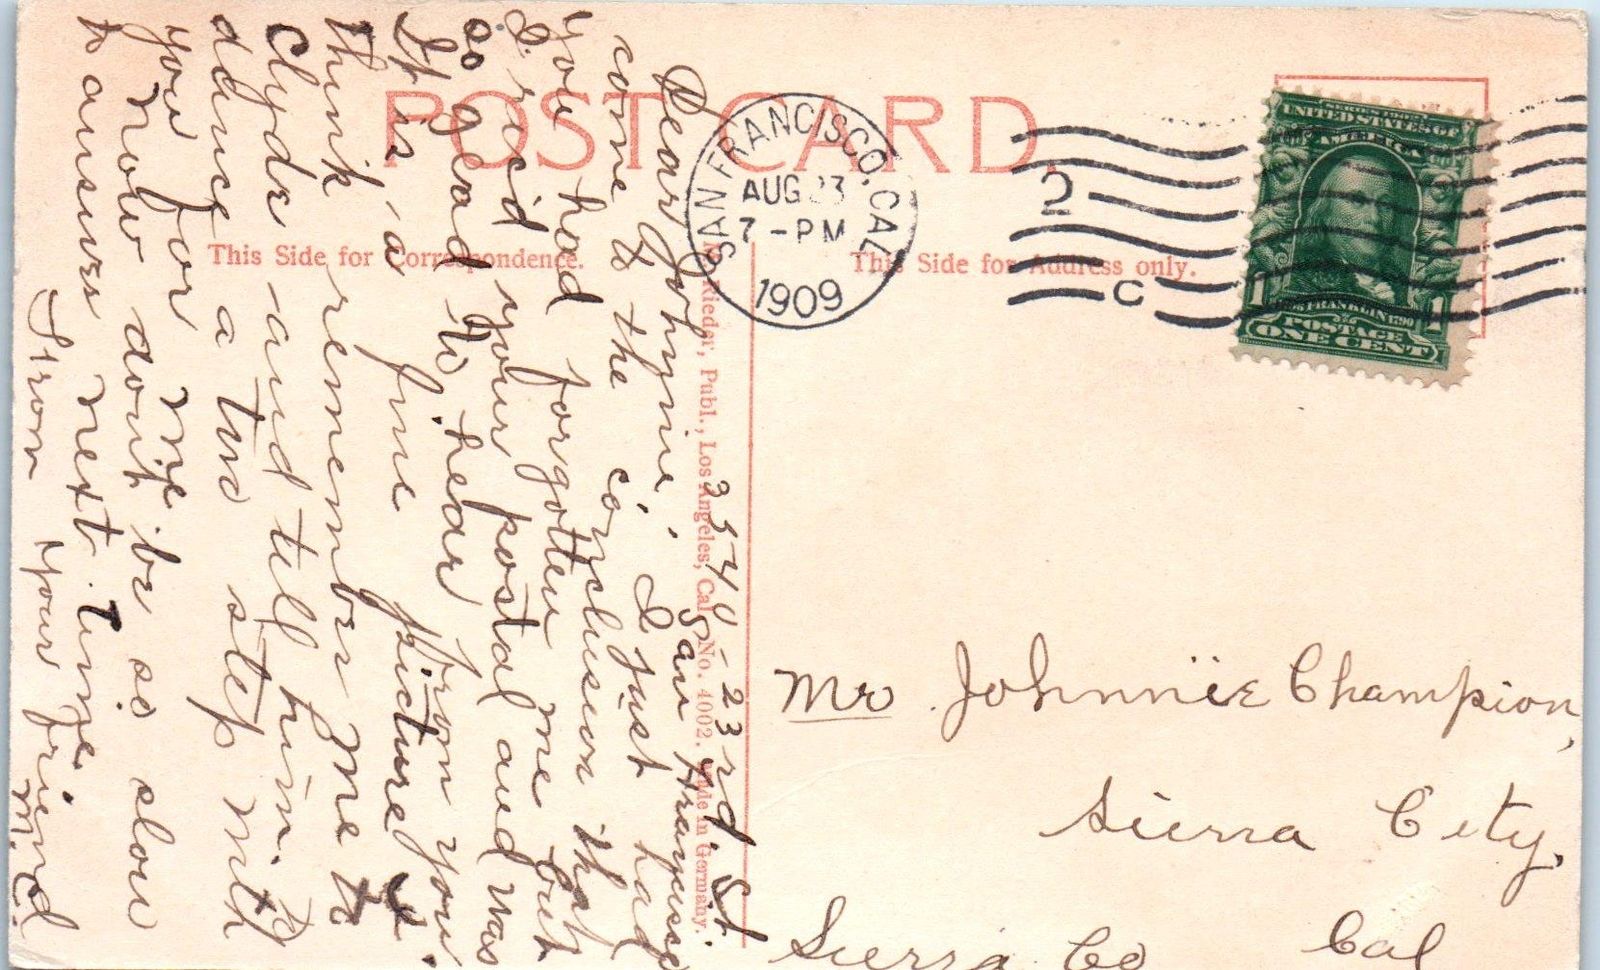 POST CARD.
This Side for Correspondence.
This Side for Address only.
SAN FRANCISCO, CAL.
AUG 23
7-PM
1909
2
C
SERIES 1902
UNITED STATES OF
AMERICA
1 FRANKLIN 1790 1
POSTAGE
ONE CENT
Rieder, Publ., Los Angeles, Cal. No. 4002. Made in Germany.
3544-23rd. St.
San Francisco
Dear Johnnie; I just had
come to the conclusion that
you had forgotten me but
I rec'd your postal and was
so glad to hear from you.
It is a fine picture. I
think remember me to
Clyde and tell him to
dance a two step with
you for me
Now dont be so slow
to answer next time.
From your friend
M.C.
Mr Johnnie Champion,
Sierra City,
Sierra Co Cal